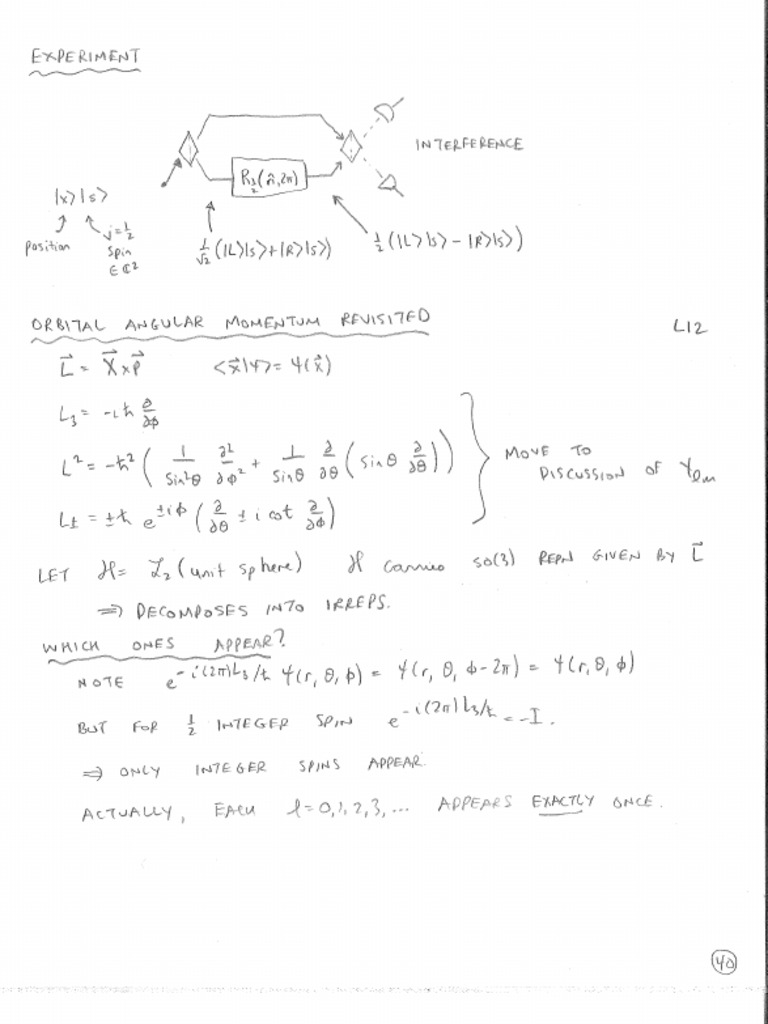 EXPERIMENT
R_{3/2}(n̂,2π)
INTERFERENCE
|x⟩|s⟩
position
j=1/2
spin
∈ ℂ²
1/√2 (|L⟩|s⟩+|R⟩|s⟩)
1/2 (|L⟩|s⟩-|R⟩|s⟩)
ORBITAL ANGULAR MOMENTUM REVISITED
L12
L⃗ = X⃗×P⃗ <x⃗|ψ> = ψ(x⃗)
L₃ = -iħ ∂/∂φ
L² = -ħ² ( 1/sin²θ ∂²/∂φ² + 1/sinθ ∂/∂θ ( sinθ ∂/∂θ ) )
MOVE TO
DISCUSSION OF Y_{lm}
L± = ±ħ e^{±iφ} ( ∂/∂θ ± i cot ∂/∂φ )
LET ℋ = ℒ₂ (unit sphere) ℋ carries SO(3) REPN GIVEN BY L⃗
⇒ DECOMPOSES INTO IRREPS.
WHICH ONES APPEAR?
NOTE e^{-i(2π)L₃/ħ} ψ(r, θ, φ) = ψ(r, θ, φ-2π) = ψ(r, θ, φ)
BUT FOR 1/2 INTEGER SPIN e^{-i(2π)L₃/ħ} = -I.
⇒ ONLY INTEGER SPINS APPEAR.
ACTUALLY, EACH l=0,1,2,3,... APPEARS EXACTLY ONCE.
40